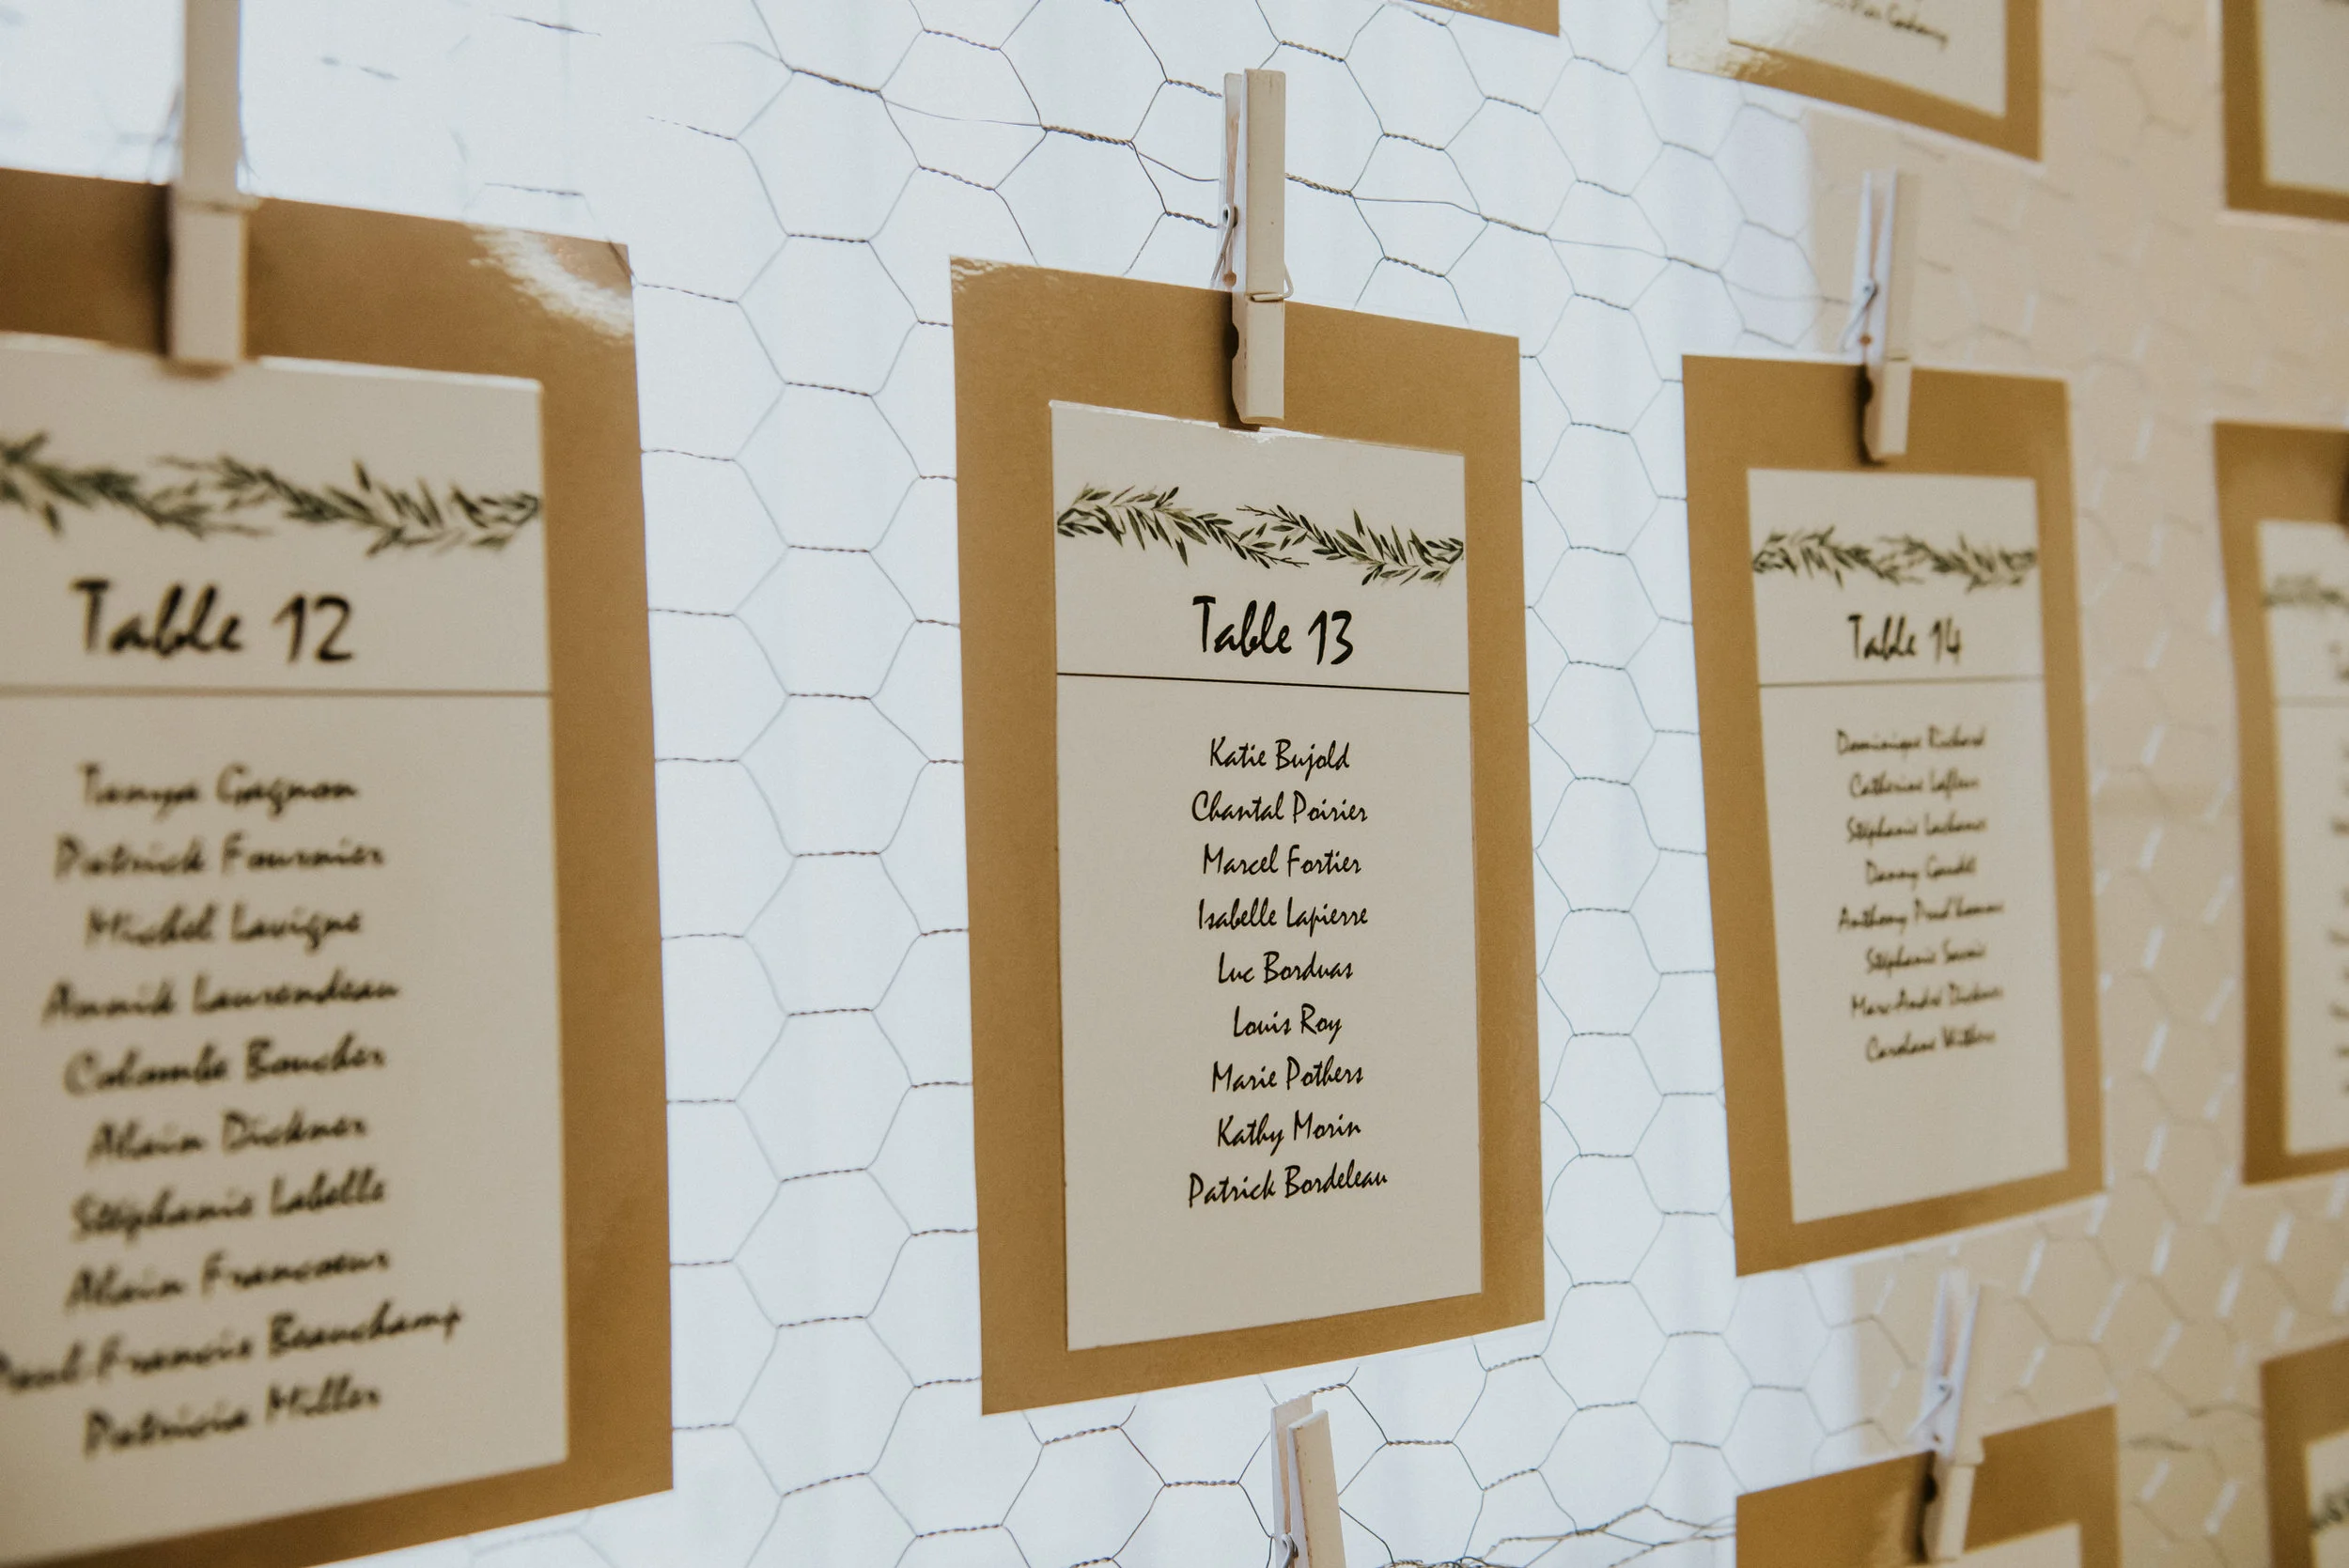 Table 12
Tanya Gagnon
Patrick Fournier
Michel Lavigne
Annick Laurendeau
Colombe Boucher
Alain Dickner
Stéphanie Labelle
Alain Francoeur
Paul-Francis Beauchamp
Patricia Miller
Table 13
Katie Bujold
Chantal Poirier
Marcel Fortier
Isabelle Lapierre
Luc Borduas
Louis Roy
Marie Pothers
Kathy Morin
Patrick Bordeleau
Table 14
Dominique Richard
Catherine Lafleur
Stéphanie Lachance
Danny Gaudet
Anthony Prud'homme
Stéphanie Savoie
Marc-André Dickner
Carolane Withers